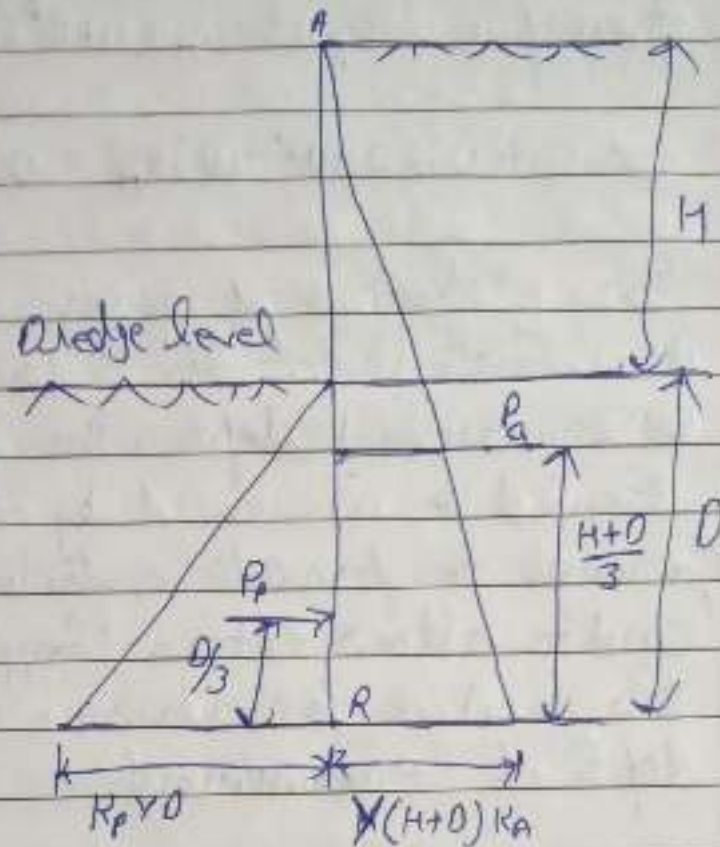 A
H
Dredge level
Pa
H+D/3
D
Pp
D/3
R
KpγD
γ(H+D)KA